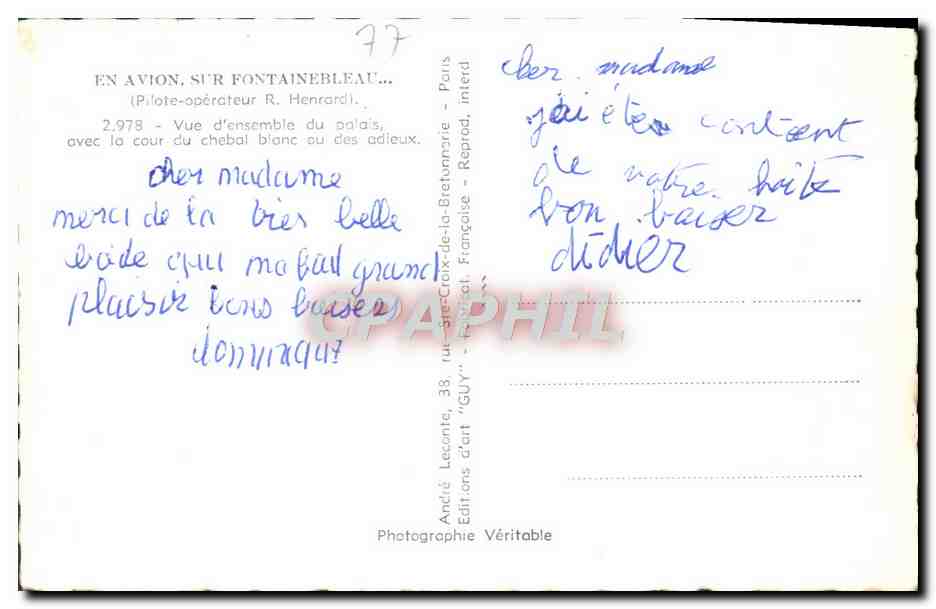 77
EN AVION, SUR FONTAINEBLEAU...
(Pilote-opérateur R. Henrard).
2.978 - Vue d'ensemble du palais,
avec la cour du chebal blanc ou des adieux.
cher madame
merci de la bies belle
boide qui ma bait grand
plaisir bons baisers
dominique
André Leconte, 38, rue Ste-Croix-de-la-Bretonnerie - Paris
Editions d'art "GUY" - Fabricat. Française - Reprod. interd
cher madame
j'ai étes contoent
de votre boite
bon baiser
didier
CPAPHIL
Photographie Véritable